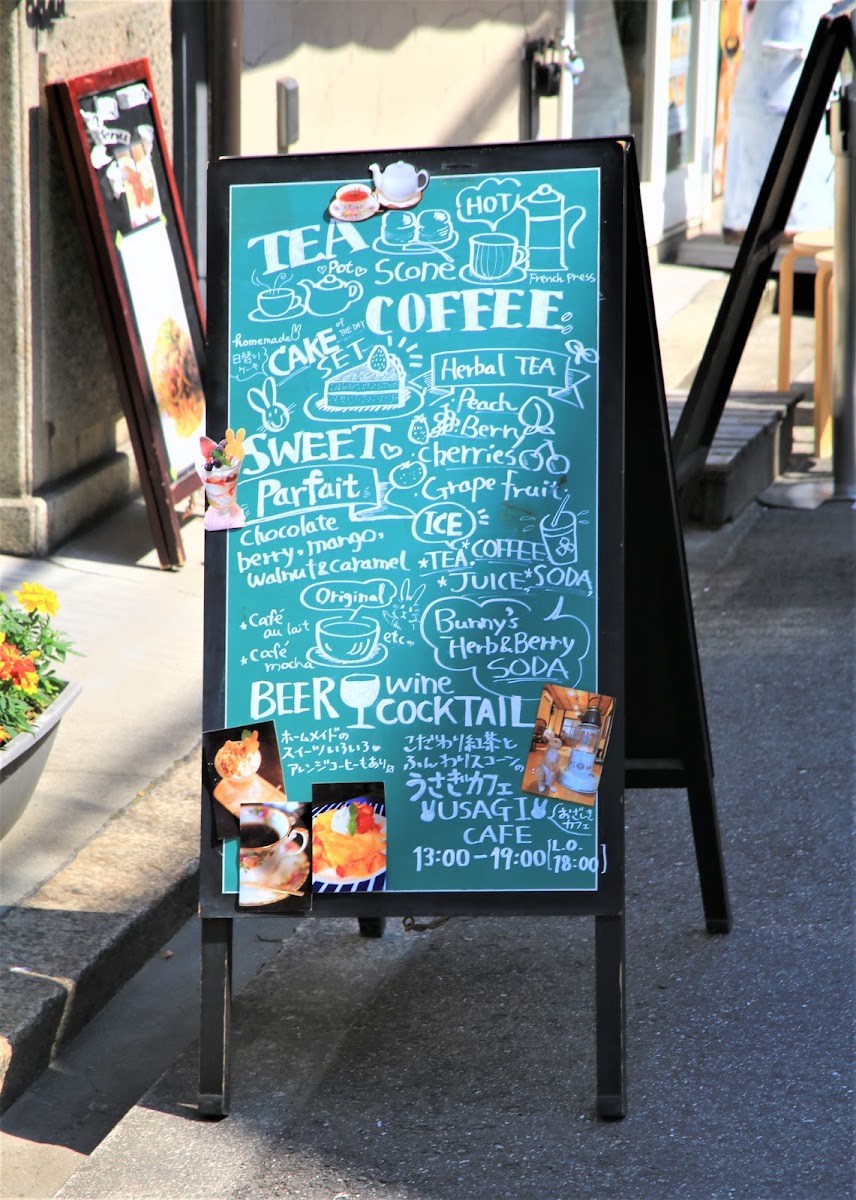 HOT
TEA
Pot
Scone
French Press
COFFEE
homemade
日替り
ケーキ
CAKE OF THE DAY
SET
Herbal TEA
Peach
Berry
Cherries
Grapefruit
SWEET
Parfait
Chocolate
berry, mango,
walnut & caramel
ICE
*TEA *COFFEE
*JUICE *SODA
Original
*Café
au lait
*Café
mocha
etc...
Bunny's
Herb & Berry
SODA
BEER wine
COCKTAIL
ホームメイドの
スイーツいろいろ
アレンジコーヒーもあり
こだわり紅茶と
ふんわりスコーンの
うさぎカフェ
USAGI
CAFE
おざしき
カフェ
13:00-19:00 [L.O. 18:00]